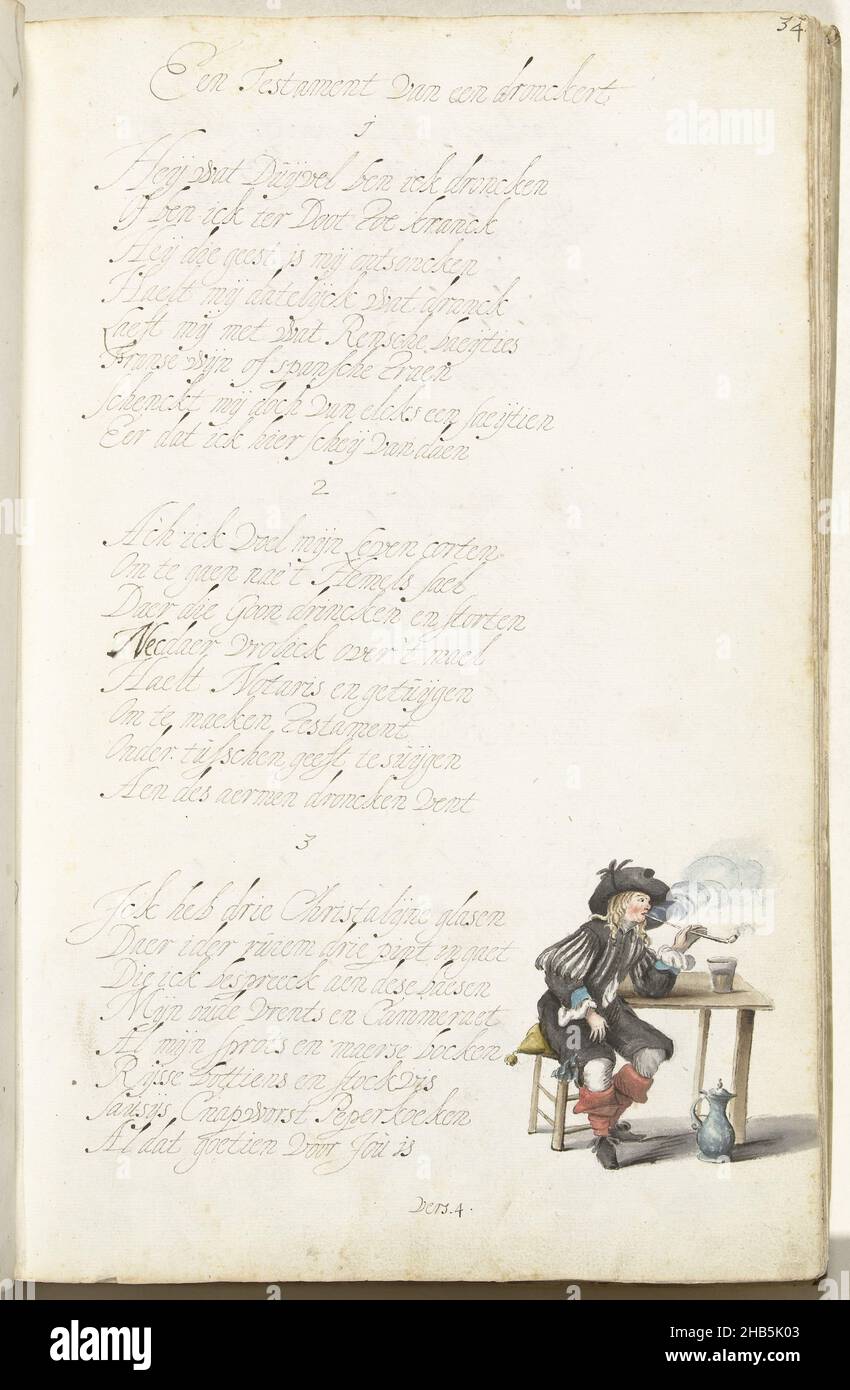 34.
Een Testament van een dronckert
1
Heij wat Duijvel ben ick droncken
Of ben ick ter Doot Zoe kranck
Heij die geest is mij ontsoncken
Haelt mij datelijck wat dranck
Laeft mij met wat Rensche baeijties
Franse wijn of spansche Traen
schenckt mij doch van elcks een saeijtien
Eer dat ick hier scheij van daen
2
Ach ick voel mijn Leven corten
Om te gaen nae't Hemels sael
Daer die Goon drincken en storten
Necdaer vrolick over 't mael
Haelt Notaris en getuijgen
Om te maeken Testament
Onder tusschen geeft te suijgen
Aen des aermen droncken vent
3
Ick heb drie Christalijne glasen
Daer ider ruiem drie pint in gaet
Die ick bespreeck aen dese baesen
Mijn oude vrents en Cammeraet
Al mijn sprots en maerse bocken
Rijsse bottiens en stock vis
sausijs Cnapworst Peperkoeken
Al dat goetien voor Jou is
Vers. 4.
alamy
alamy
Image ID: 2HB5K03
www.alamy.com